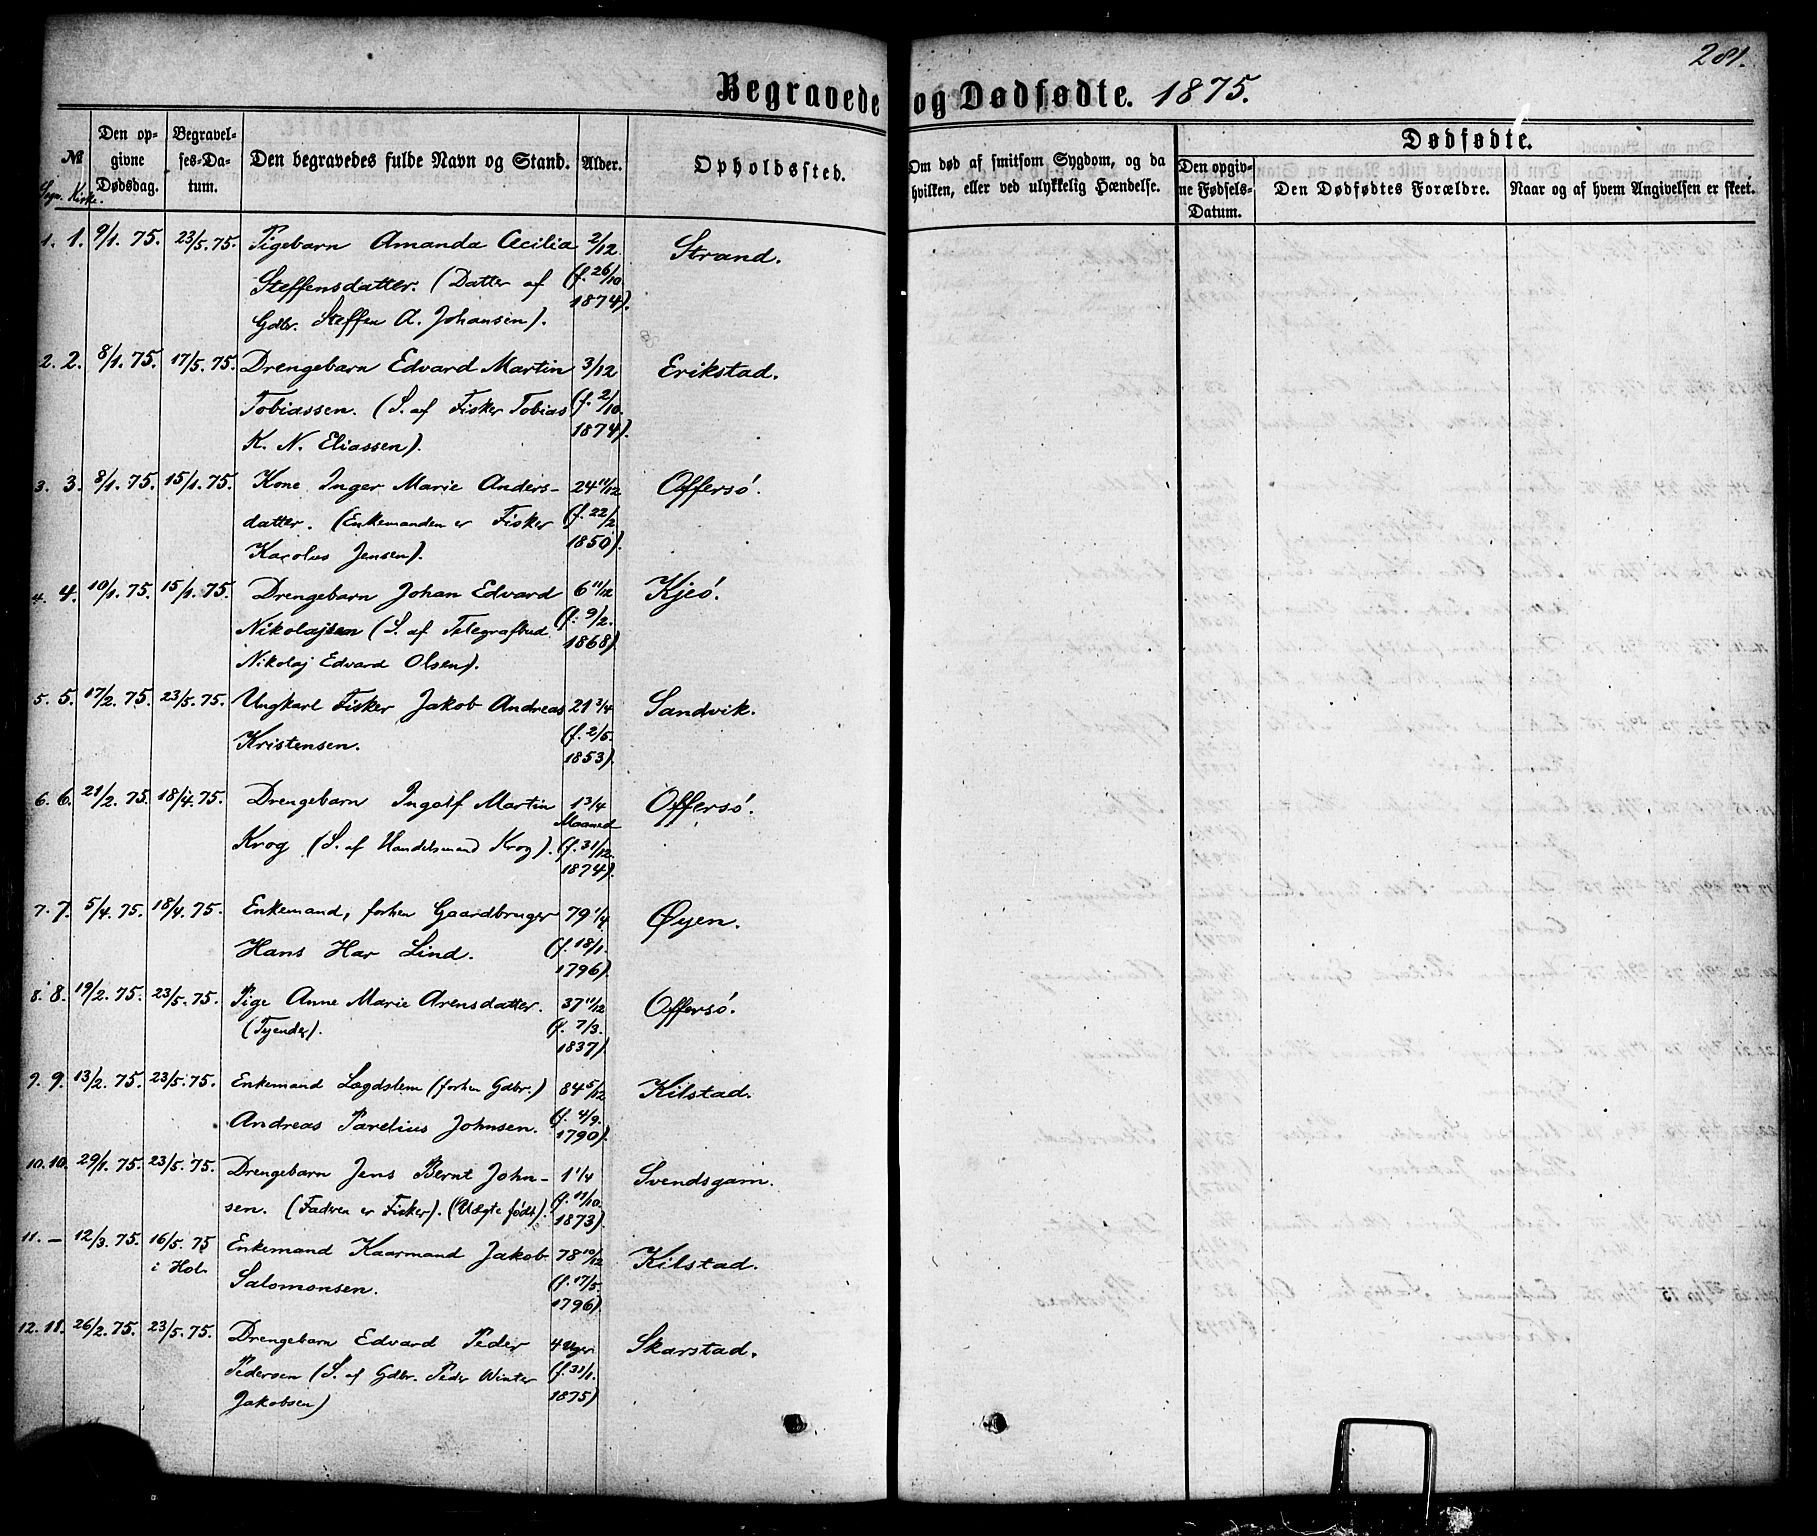 281.
Begravede og Dødfødte. 1875.
No.
Sogn. Kirke.
Den opgivne Dødsdag.
Begravelses-Datum.
Den begravedes fulde Navn og Stand.
Alder.
Opholdssted.
Om død af smitsom Sygdom, og da
hvilken, eller ved ulykkelig Hændelse.
Dødfødte.
Den opgivne Fødsels-Datum.
Den Dødfødtes Forældre.
Naar og af hvem Angivelsen er skeet.
1. 1. 9/1. 75. 23/5. 75. Pigebarn Amanda Cecilia 2/12 Strand.
Steffensdatter. (Datter af (f. 26/10
Gdbr. Steffen A. Johansen). 1874).
2. 2. 8/1. 75. 17/5. 75. Drengebarn Edvard Martin 3/12 Erikstad.
Tobiassen. (S. af Fisker Tobias (f. 2/10.
K. N. Eliassen). 1874).
3. 3. 8/1. 75. 15/1. 75. Kone Inger Marie Anders- 24 11/12 Offersö.
datter. (Enkemanden er Fisker (f. 22/2
Karolus Jensen). 1850).
4. 4. 10/1. 75. 15/1. 75. Drengebarn Johan Edvard 6 11/12 Kjeö.
Nikolajsen (S. af Telegrafbud (f. 9/2.
Nikolaj Edvard Olsen). 1868).
5. 5. 17/2. 75. 23/5. 75. Ungkarl Fisker Jakob Andreas 21 3/4 Sandvik.
Kristensen. (f. 2/5.
1853).
6. 6. 21/2. 75. 18/4. 75. Drengebarn Ingolf Martin 1 3/4 Offersö.
Maaned
Krog (S. af Handelsmand Krog). (f. 31/12.
1874).
7. 7. 5/4. 75. 18/4. 75. Enkemand, forhen Gaardbruger 79 1/4 Øyen.
Hans Har Lind. (f. 18/1.
1796).
8. 8. 19/2. 75. 23/5. 75. Pige Anne Marie Arensdatter. 37 11/12 Offersö.
(Tyender). (f. 7/3.
1837).
9. 9. 13/2. 75. 23/5. 75. Enkemand Lægdslem (forhen Gdbr.) 84 5/12 Kilstad.
Andreas Parelius Johnsen. (f. 4/9.
1790).
10. 10. 29/1. 75. 23/5. 75. Drengebarn Jens Bernt John- 1 1/4 Svendsgam.
sen. (Faderen er Fisker). (Uægte født). (f. 11/10.
1873).
11. – 12/3. 75. 16/5. 75 Enkemand Kaarmand Jakob 78 10/12 Kilstad.
i Hol. Salomonsen. (f. 17/5.
1796).
12. 11. 26/2. 75. 23/5. 75. Drengebarn Edvard Peder 4 Uger Skarstad.
Pedersen (S. af Gdbr. Peder Winter (f. 31/1.
Jakobsen) 1875)